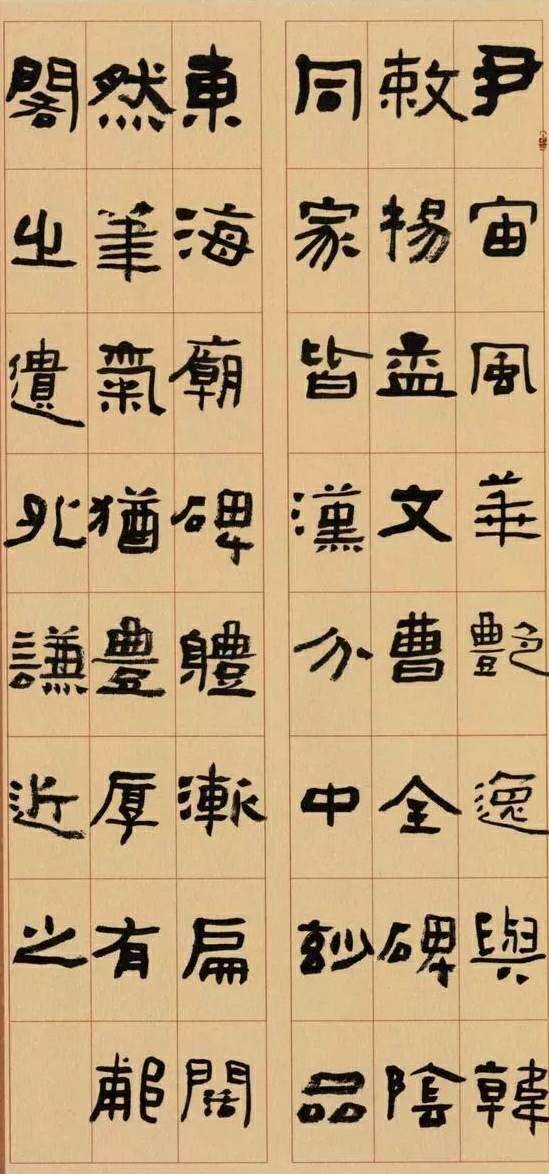 尹宙風華艷逸與韓
敕楊孟文曹全碑陰
同家皆漢分中玅品
東海廟碑軆漸扁闊
然筆氣猶豐厚有郙
閣之遺孔謙近之